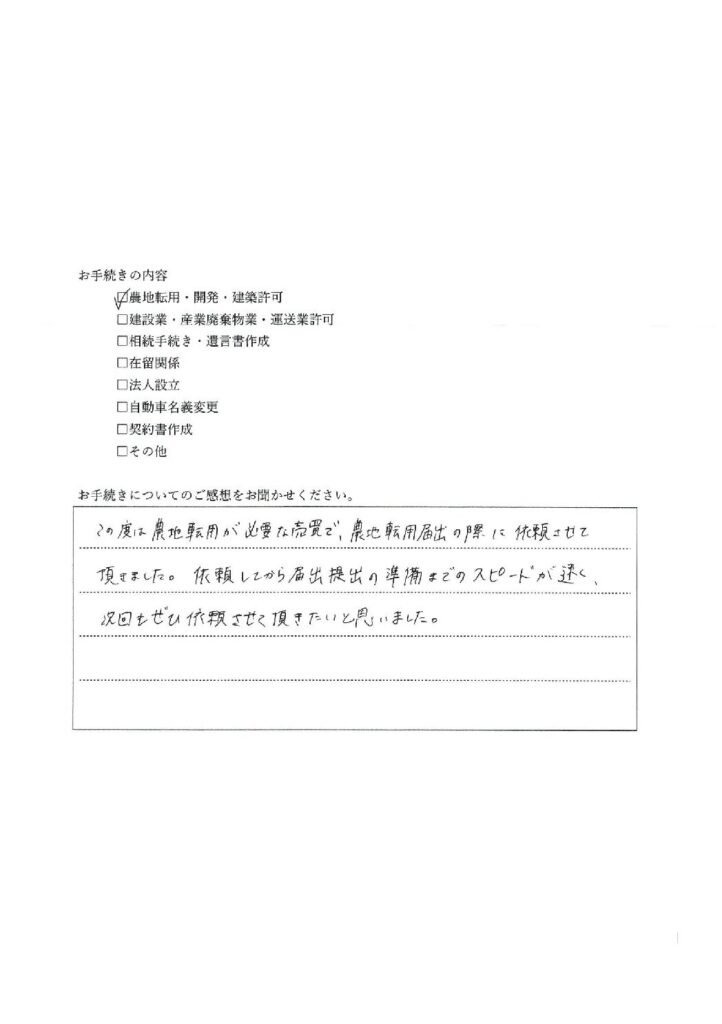 お手続きの内容
☑農地転用・開発・建築許可
□建設業・産業廃棄物業・運送業許可
□相続手続き・遺言書作成
□在留関係
□法人設立
□自動車名義変更
□契約書作成
□その他
お手続きについてのご感想をお聞かせください。
この度は農地転用が必要な売買で、農地転用届出の際に依頼させて
頂きました。依頼してから届出提出の準備までのスピードが速く、
次回もぜひ依頼させて頂きたいと思いました。